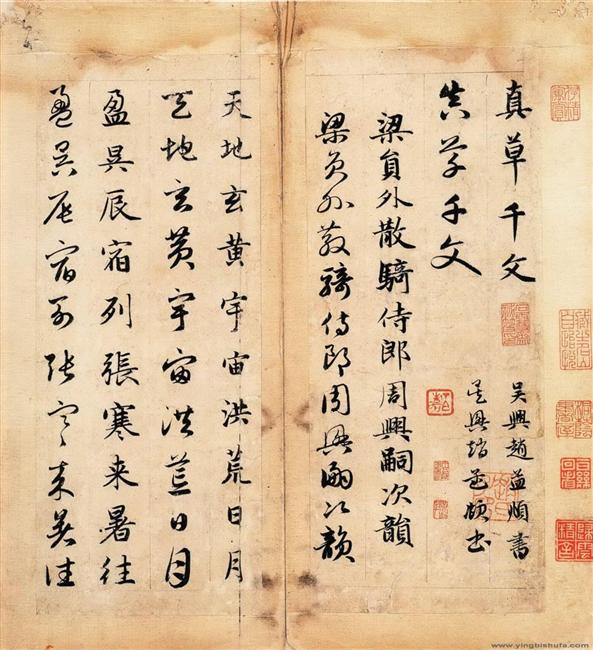 真草千文　吳興趙孟頫書
真草千文　吳興趙孟頫書
梁員外散騎侍郎周興嗣次韻
梁員外散騎侍郎周興嗣次韻
天地玄黃宇宙洪荒日月
天地玄黃宇宙洪荒日月
盈昃辰宿列張寒来暑往
盈昃辰宿列張寒来暑往
www.yingbishufa.com